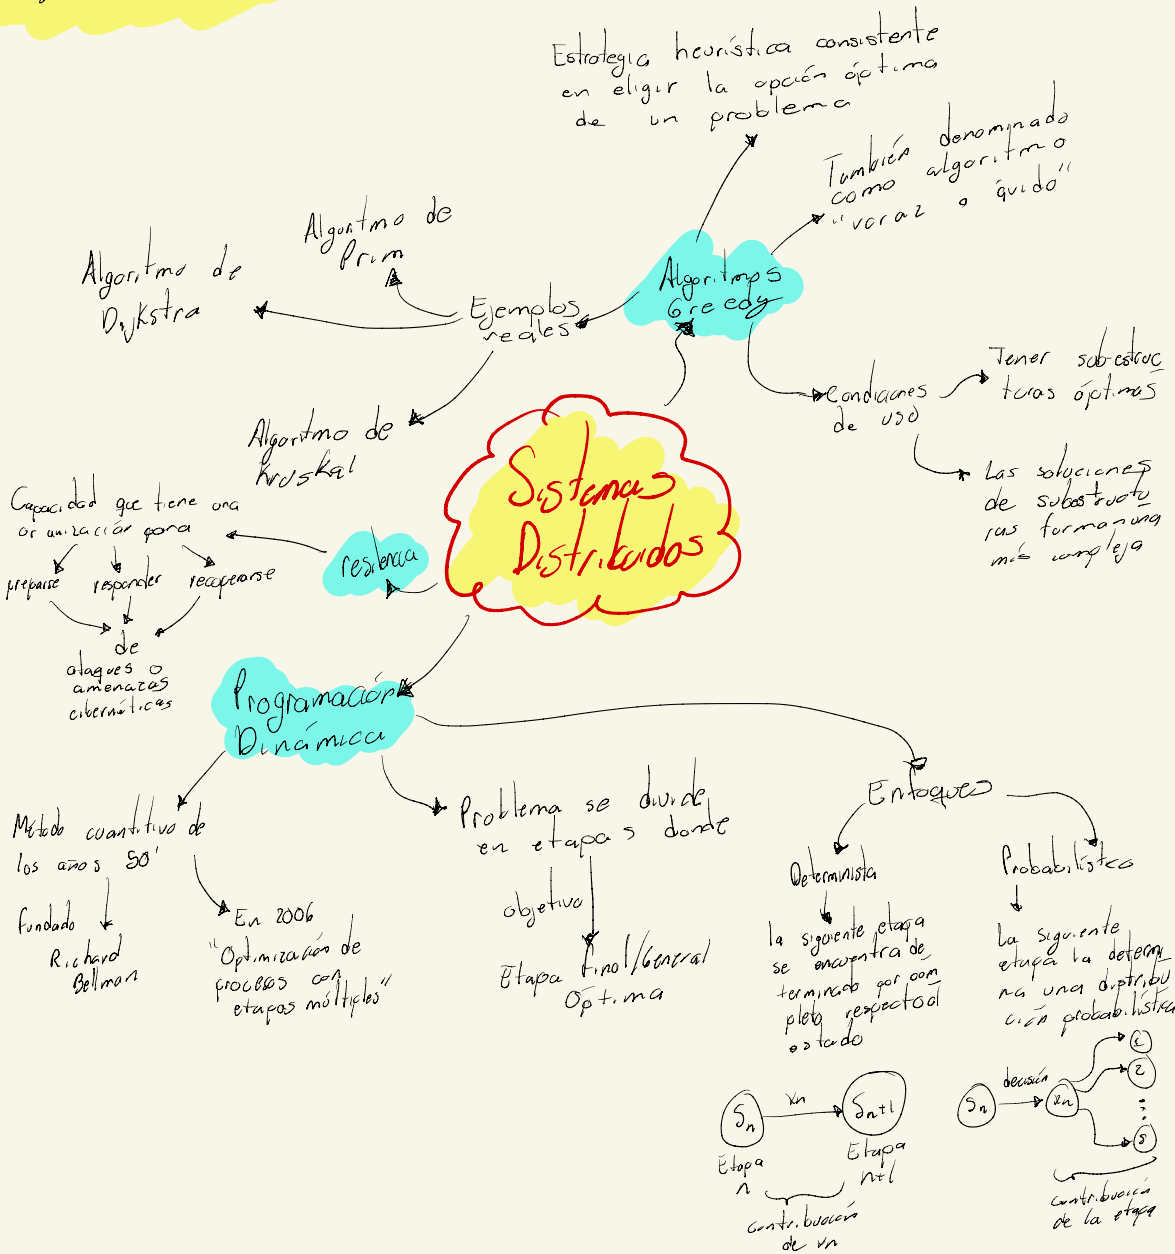 Estrategia heurística consistente
en eligir la opción óptima
de un problema
También denominado
como algoritmo
"voraz o ávido"
Algoritmos
Greedy
Ejemplos
reales
Algoritmo de
Prim
Algoritmo de
Dijkstra
Algoritmo de
Kruskal
Condiciones
de uso
Tener sub-estruc
turas óptimas
Las soluciones
de subestructu
ras forman una
más compleja
Sistemas
Distribuidos
resilencia
Capacidad que tiene una
organización para
preparse
responder
recuperarse
de
ataques o
amenazas
cibernéticas
Programación
Dinámica
Método cuantitivo de
los años 50'
fundado
Richard
Bellman
En 2006
"Optimización de
procesos con
etapas múltiples"
Problema se divide
en etapas donde
objetivo
Etapa final/General
Óptima
Enfoques
Determinista
la siguiente etapa
se encuentra de
terminado por com
pleto respecto al
estado
Probabilístico
La siguiente
etapa la determi
na una distribu
ción probabilística
Sn
xn
Sn+1
Etapa
n
Etapa
n+1
contribución
de xn
Sn
decisión
xn
1
2
...
s
contribución
de la etapa